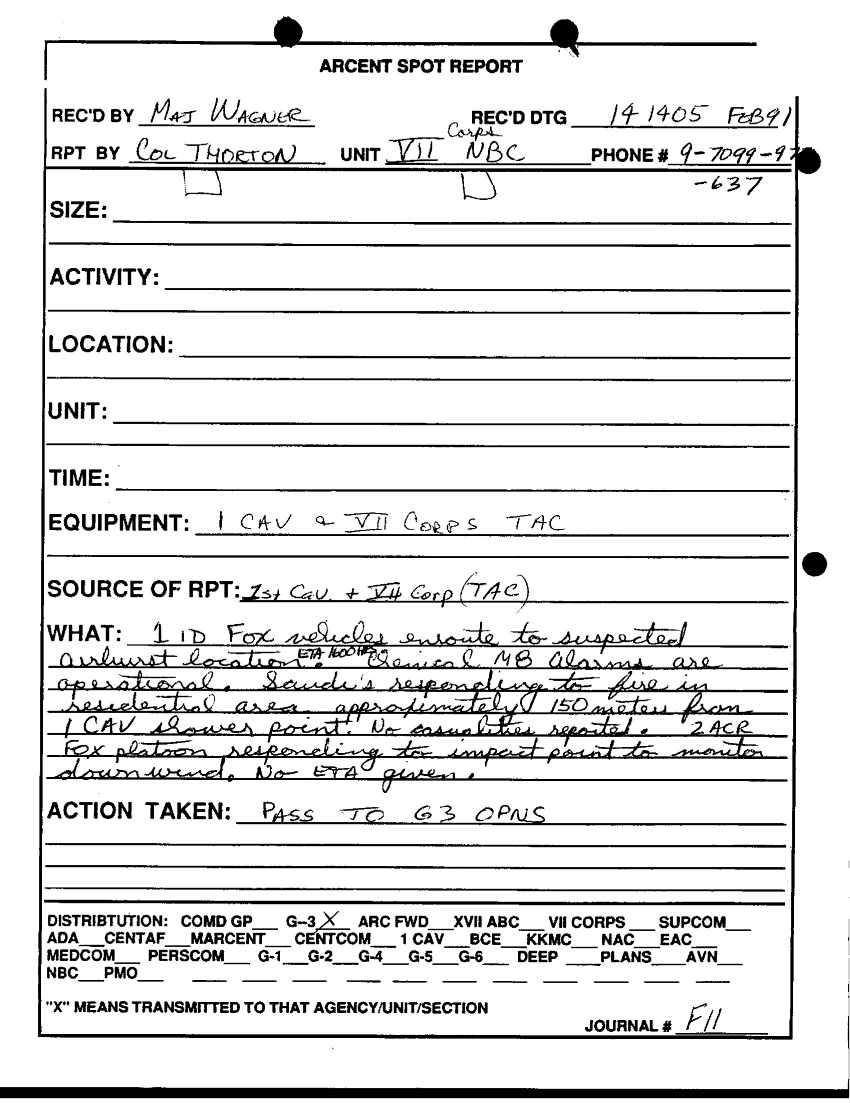 ARCENT SPOT REPORT
REC'D BY MAJ WAGNER REC'D DTG 141405 FEB91
RPT BY COL THORTON UNIT VII Corps NBC PHONE # 9-7099-97
-637
SIZE:
ACTIVITY:
LOCATION:
UNIT:
TIME:
EQUIPMENT: 1 CAV & VII CORPS TAC
SOURCE OF RPT: 1st Cav. + VII Corp (TAC)
WHAT: 1 ID Fox vehicles enroute to suspected
airburst location. ETA 1600 Chemical M8 Alarms are
operational. Saudi's responding to fire in
residential area approximately 150 meters from
1 CAV shower point. No casualities reported. 2ACR
Fox platoon responding to impact point to monitor
downwind. No ETA given.
ACTION TAKEN: PASS TO G3 OPNS
DISTRIBTUTION: COMD GP___ G--3 X ARC FWD___ XVII ABC___ VII CORPS___ SUPCOM___
ADA___CENTAF___MARCENT___CENTCOM___1 CAV___BCE___KKMC___NAC___EAC___
MEDCOM___ PERSCOM___G-1___G-2___G-4___G-5___G-6___ DEEP___PLANS___AVN___
NBC___PMO___
"X" MEANS TRANSMITTED TO THAT AGENCY/UNIT/SECTION
JOURNAL # F11